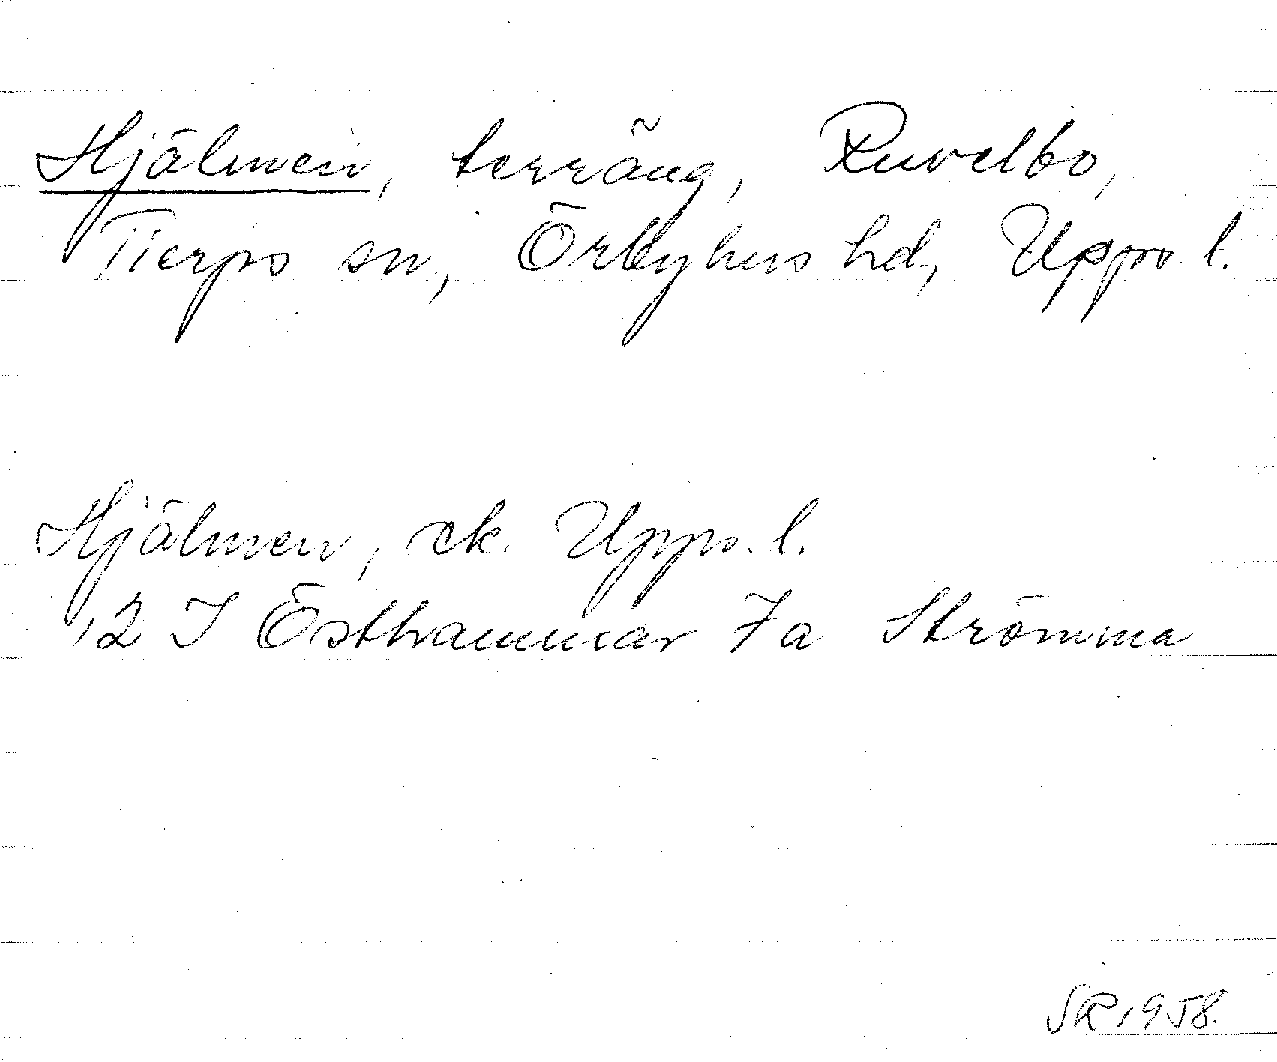 Hjälmen, terräng, Ruvelbo,
Tierps sn, Örbyhus hd, Upps. l.
Hjälmen, ek. Upps. l.
12 I Östhammar 7a Strömma
SR 1958.